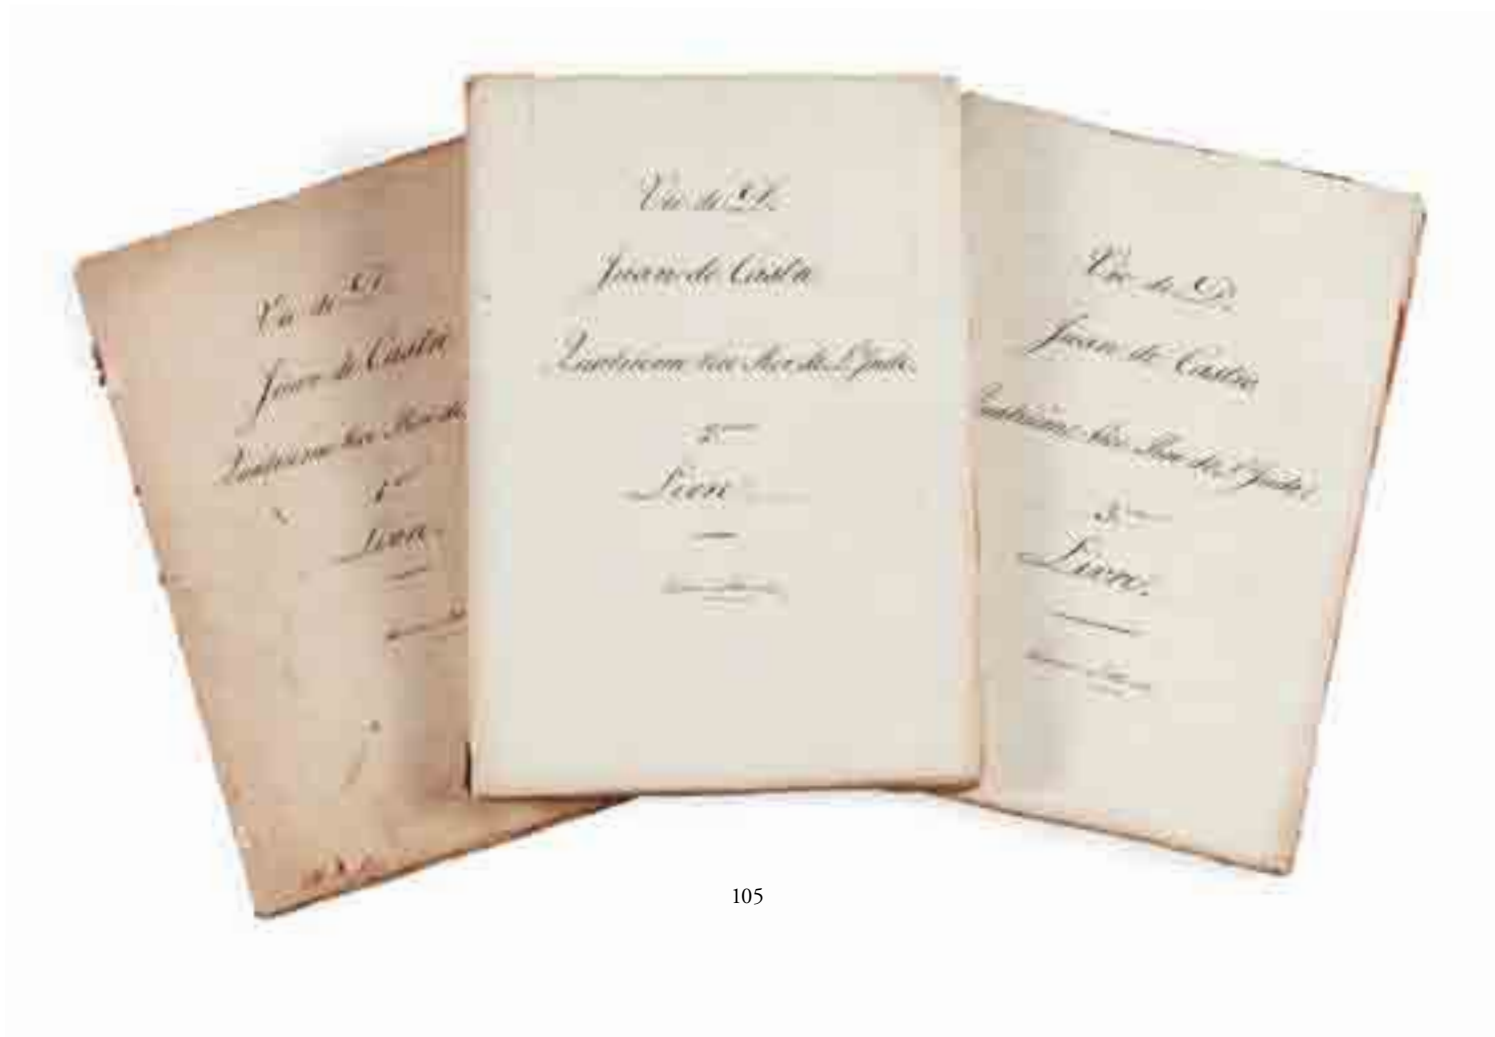 Vie de D.
Juan de Castro
Quatrieme Vice Roi de
1er
Livre.
Vie de D.
Juan de Castro
Quatrieme Vice Roi de L'Inde.
2me
Livre
Vie de D.
Juan de Castro
Quatrieme Vice Roi de L'Inde.
3me
Livre.
105